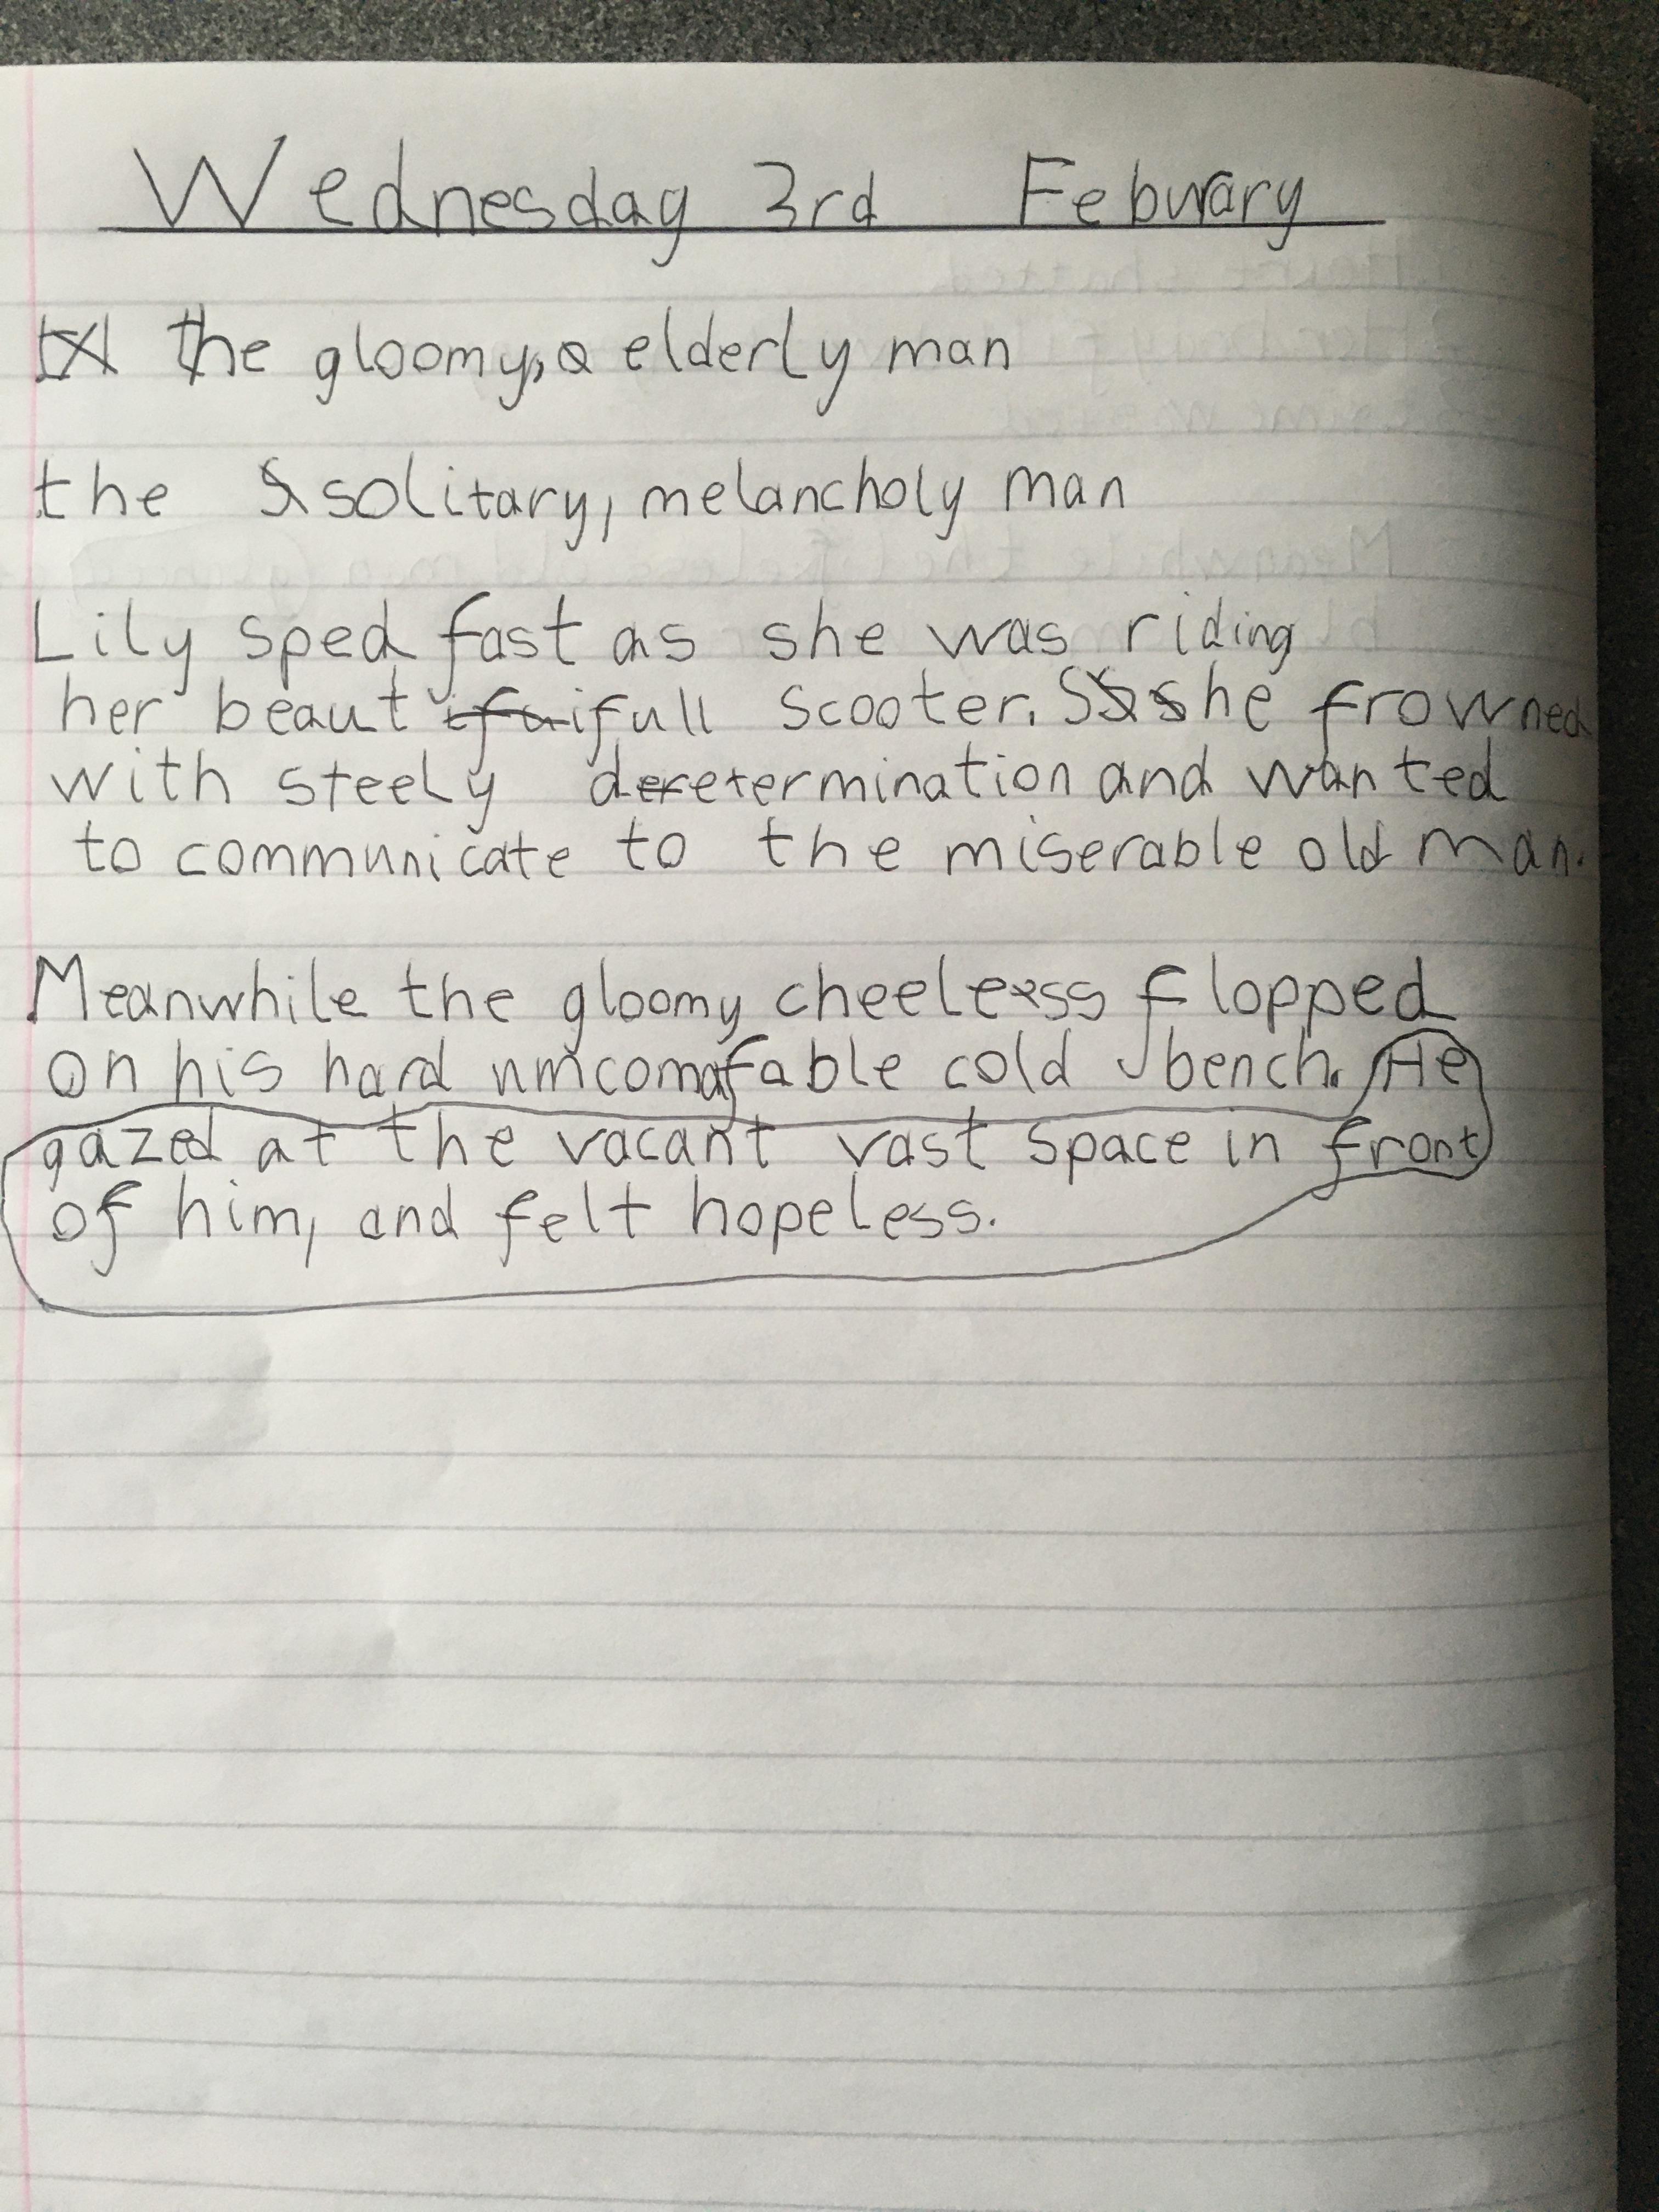 Wednesday 3rd Febuary
the gloomy, elderly man
the solitary, melancholy man
Lily sped fast as she was riding
her beautifull scooter. She frowned
with steely determination and wanted
to communicate to the miserable old man.
Meanwhile the gloomy cheeless flopped
on his hard cold bench. He
gazed at the vacant vast space in front
of him, and felt hopeless.